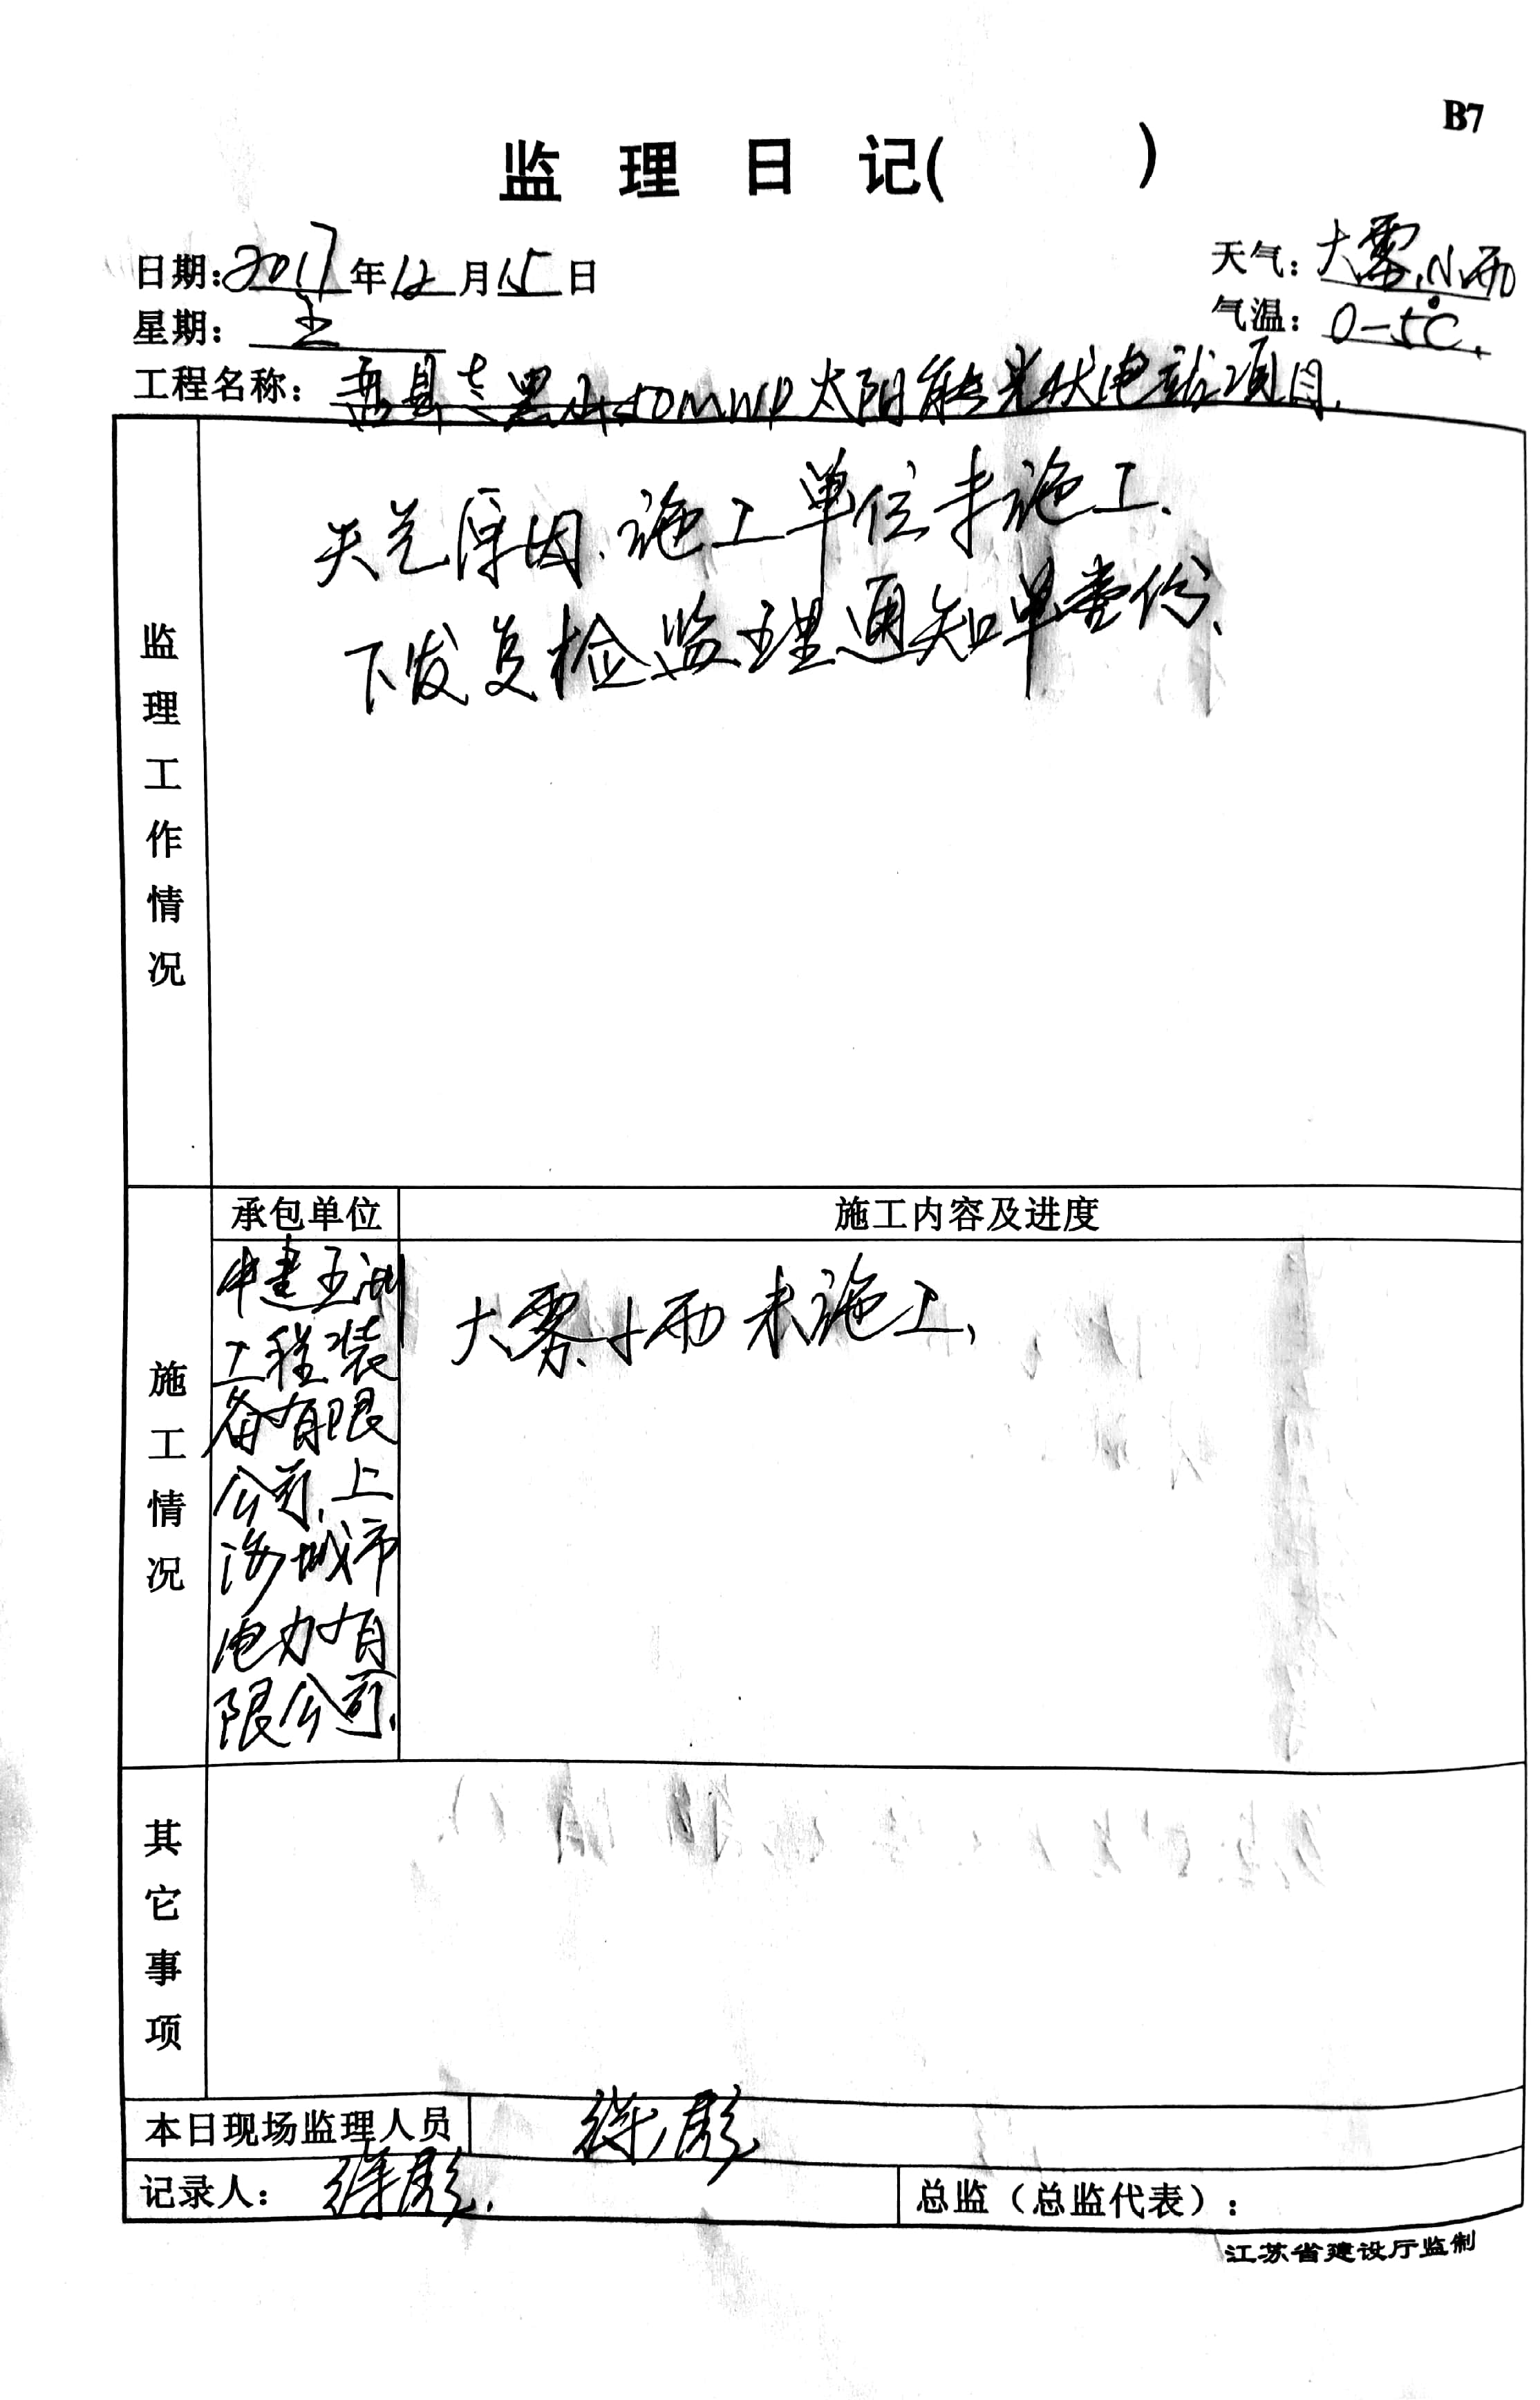 B7
监理日记( )
日期:2017年12月15日
天气:大雾.小雨
星期:五
气温:0-5℃.
工程名称:县黑山50MWP太阳能光伏电站项目.
监理工作情况
天气原因.施工单位未施工.
下发复检监理通知单壹份、
施工情况
承包单位
施工内容及进度
中建亚洲
工程装
备有限
公司.上
海城市
电力有
限公司.
大雾.小雨未施工、
其它事项
本日现场监理人员 徐彪
记录人: 徐彪. 总监(总监代表):
江苏省建设厅监制